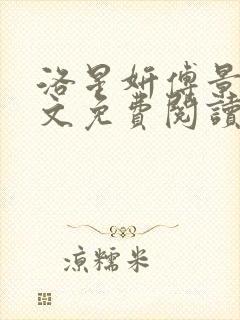 洛星妍傅景
文免費閱讀
涼糯米